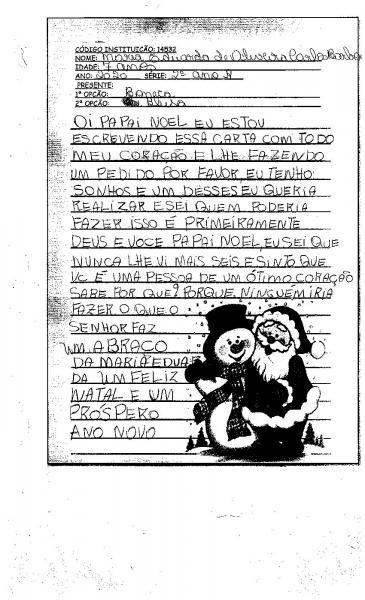 CÓDIGO INSTITUIÇÃO: 14532
NOME: Maria Eduarda de Oliveira Carlo
IDADE: 7 anos
ANO: 2020 SÉRIE: 2º ano A
PRESENTE:
1ª OPÇÃO: Boneca
2ª OPÇÃO: Blusa
OI PAPAI NOEL EU ESTOU
ESCREVENDO ESSA CARTA COM TODO
MEU CORAÇÃO E LHE FAZENDO
UM PEDIDO POR FAVOR, EU TENHO
SONHOS E UM DESSES EU QUERIA
REALIZAR E SEI QUEM PODERIA
FAZER ISSO É PRIMEIRAMENTE
DEUS E VOCE PAPAI NOEL, EU SEI QUE
NUNCA LHE VI MAIS SEI S E SINTO QUE
VC É UMA PESSOA DE UM ÓTIMO CORAÇÃO
SABE POR QUE? PORQUE NINGUEM IRIA
FAZER O QUE O
SENHOR FAZ
UM ABRAÇO
DA MARIA EDUAR
DA UM FELIZ
NATAL E UM
PRÓSPERO
ANO NOVO